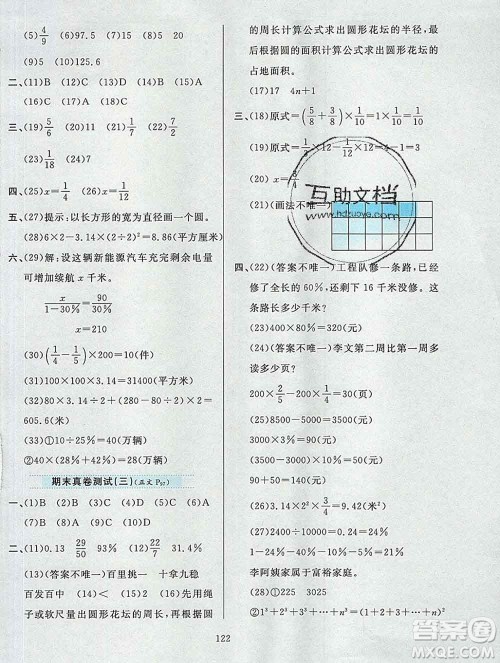 (5)4/9 (6)97.5 (7)15 (8)20
(9)5 (10)3.44
二、(11)B (12)C (13)D (14)A (15)A
(16)C (17)A
三、(19)5/6 (20)3 (21)1/12 (22)13/21
(23)1/18 (24)7
四、(25)x=1/4 (26)x=1/6
五、(27)提示:以长方形的宽为直径画一个圆。
(28)6×2-3.14×(2÷2)²=8.86(平方厘米)
六、(29)解:设这辆新能源汽车充完剩余电量
可增加续航 x 千米。
x/1-30%=90/30%
x=210
(30)(1/4-1/5)×200=10(件)
(31)100×100×3.14=31400(平方米)
100×3.14+100×3.14÷2+(80+40)÷2=
605.6(米)
(32)①52÷10%=20%
②40×2%+20%=4(万元)
期末真卷测试(三)(正文 P97)
一、(1)B (2)D (3)B (4)C (5)A (6)B
(7)A (8)D (9)C (10)C
二、(11)0.13 29/50 93% (12)22/7 31.4%
(13)(答案不唯一)百里挑一 十拿九稳
百发百中 (14)2 (15)62 (16)先用绳
子或软尺量出圆形花坛的周长,再根据圆
的周长计算公式求出圆形花坛的半径,最
后根据圆的面积计算公式求出圆形花坛的
占地面积。
(17)17 4n+1
三、(18)原式=(5/8+3/8)×1/10=1×1/10=1/10
(19)原式=1/3×12-1/12×12=4-1=3
(20)x=3/4
(21)(画法不唯一)
互助文档
www.hdzuoye.com
四、(22)(答案不唯一)工程队修一条路,已经
修了全长的 60%,还剩下 16 千米没修。这
条路长多少千米?
(23)400×80%=320(元)
(24)(答案不唯一)李文第二周比第一周多
读多少页?
200×2/5-200×1/4=30(页)
(25)(8000-5000)×3%=90(元)
(26)9000÷3/5=15000(元)
15000×1/10=1500(元)
(27)3500÷15000≈23%
1-24%-10%-20%-23%=23%
李阿姨家属于富裕家庭。
(28)①225 3025
②1³+2³+…+n³=(1+2+3+…+n)²
122